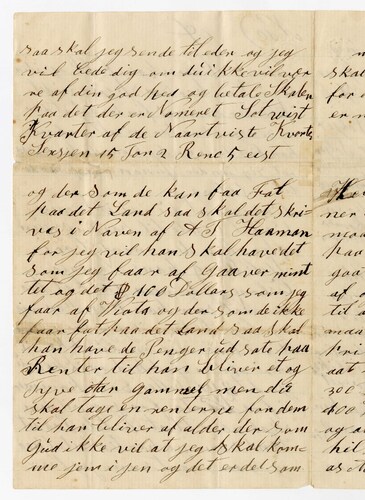 saa skal jeg sende til eden og jeg
vil bede dig om du ikke vil vær
re af den god hed og betale Skaten
paa det der er Nomeret Sot vest
Kvarter af de Naartviste Kvorte
Sexsjen 15 Ton 2 Renc 5 eist
og der som de kan faa Fat
paa det Land saa skal det skri-
ves i Naven af A T Haaman
for jeg vil han skal have det
som jeg faar af Gaaver mint
tet og det $ 100 Dollars som jeg
faar af Viola og der som de ikke
faar fat paa det Land saa skal
han have de Penger ud sate paa
Renter til han bliver et og
Tyve Aar Gammel men du
skal tage en renterne for dem
til han bliver af alder der som
Gud ikke vil at jeg skal kom-
me jem i jen og det er del som
skal
for
er n
ner
moo
paa
gaa
af
til
maa
fri
aat
300
400
og
hil
as